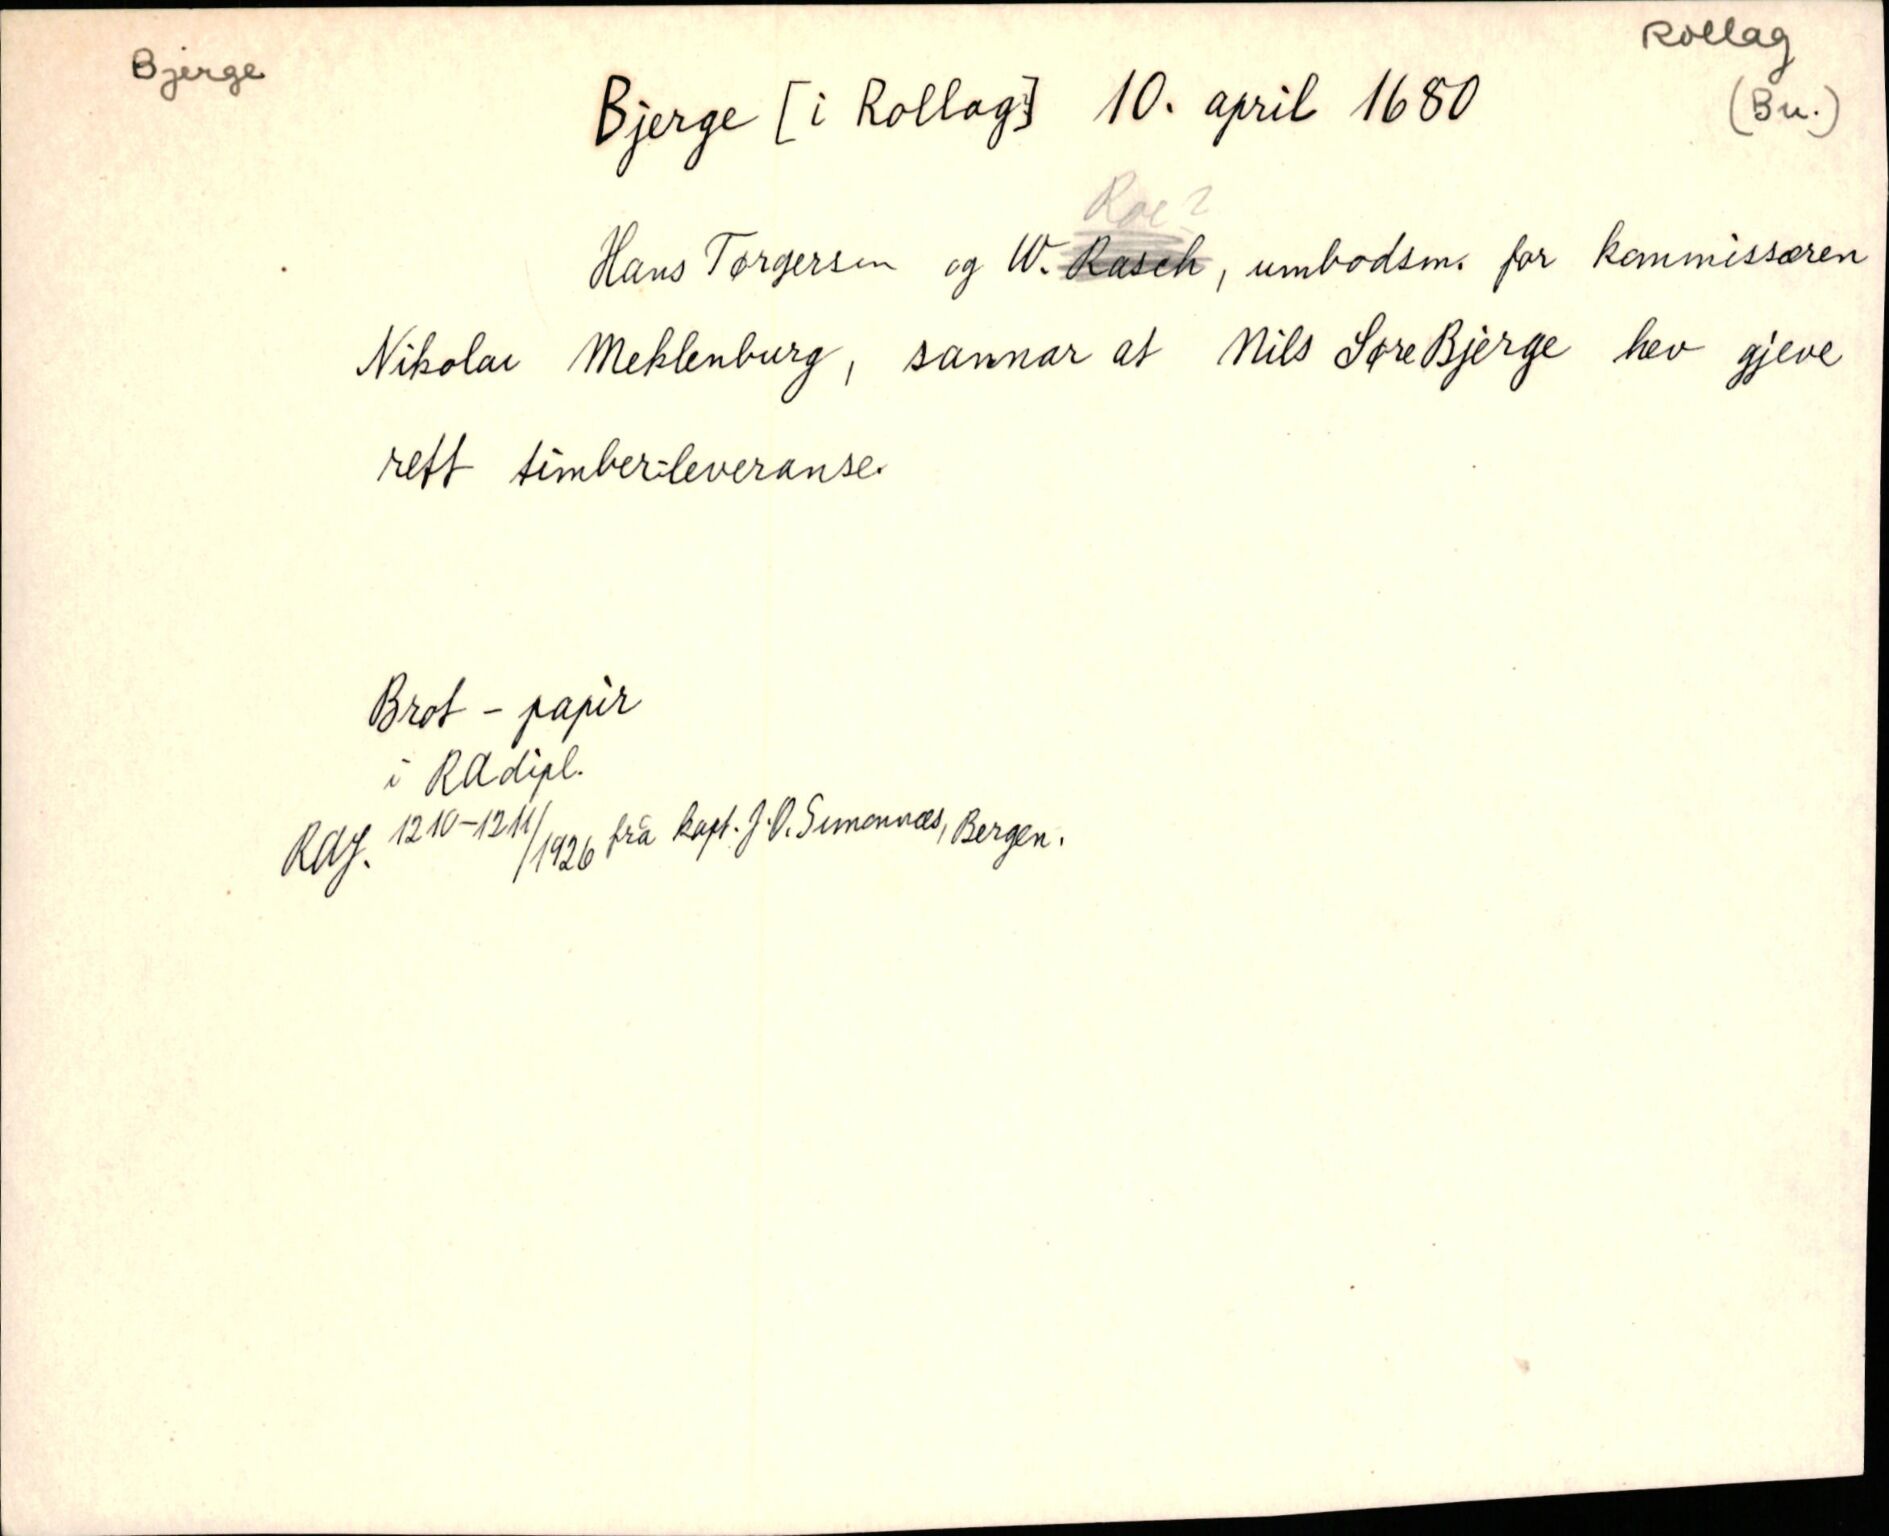 Bjerge
Rollag
(Bu.)
Bjerge [i Rollag] 10. april 1680
Roe?
Hans Torgersen og W. Rasch, umbodsm. for kommissæren
Nikolai Meklenburg, sannar at Nils Søre Bjerge hev gjeve
rett timber-leveranse.
Brot - papir
i RA dipl.
RAJ. 1210-1211/1926 frå kapt. J. O. Simonnæs, Bergen.